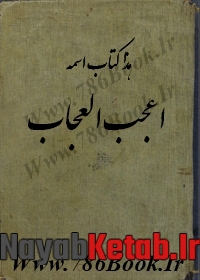 هذا کتاب اسمه
اعجب العجاب
www.786Book.Ir
NayabKetab.Ir
www.786Book.Ir